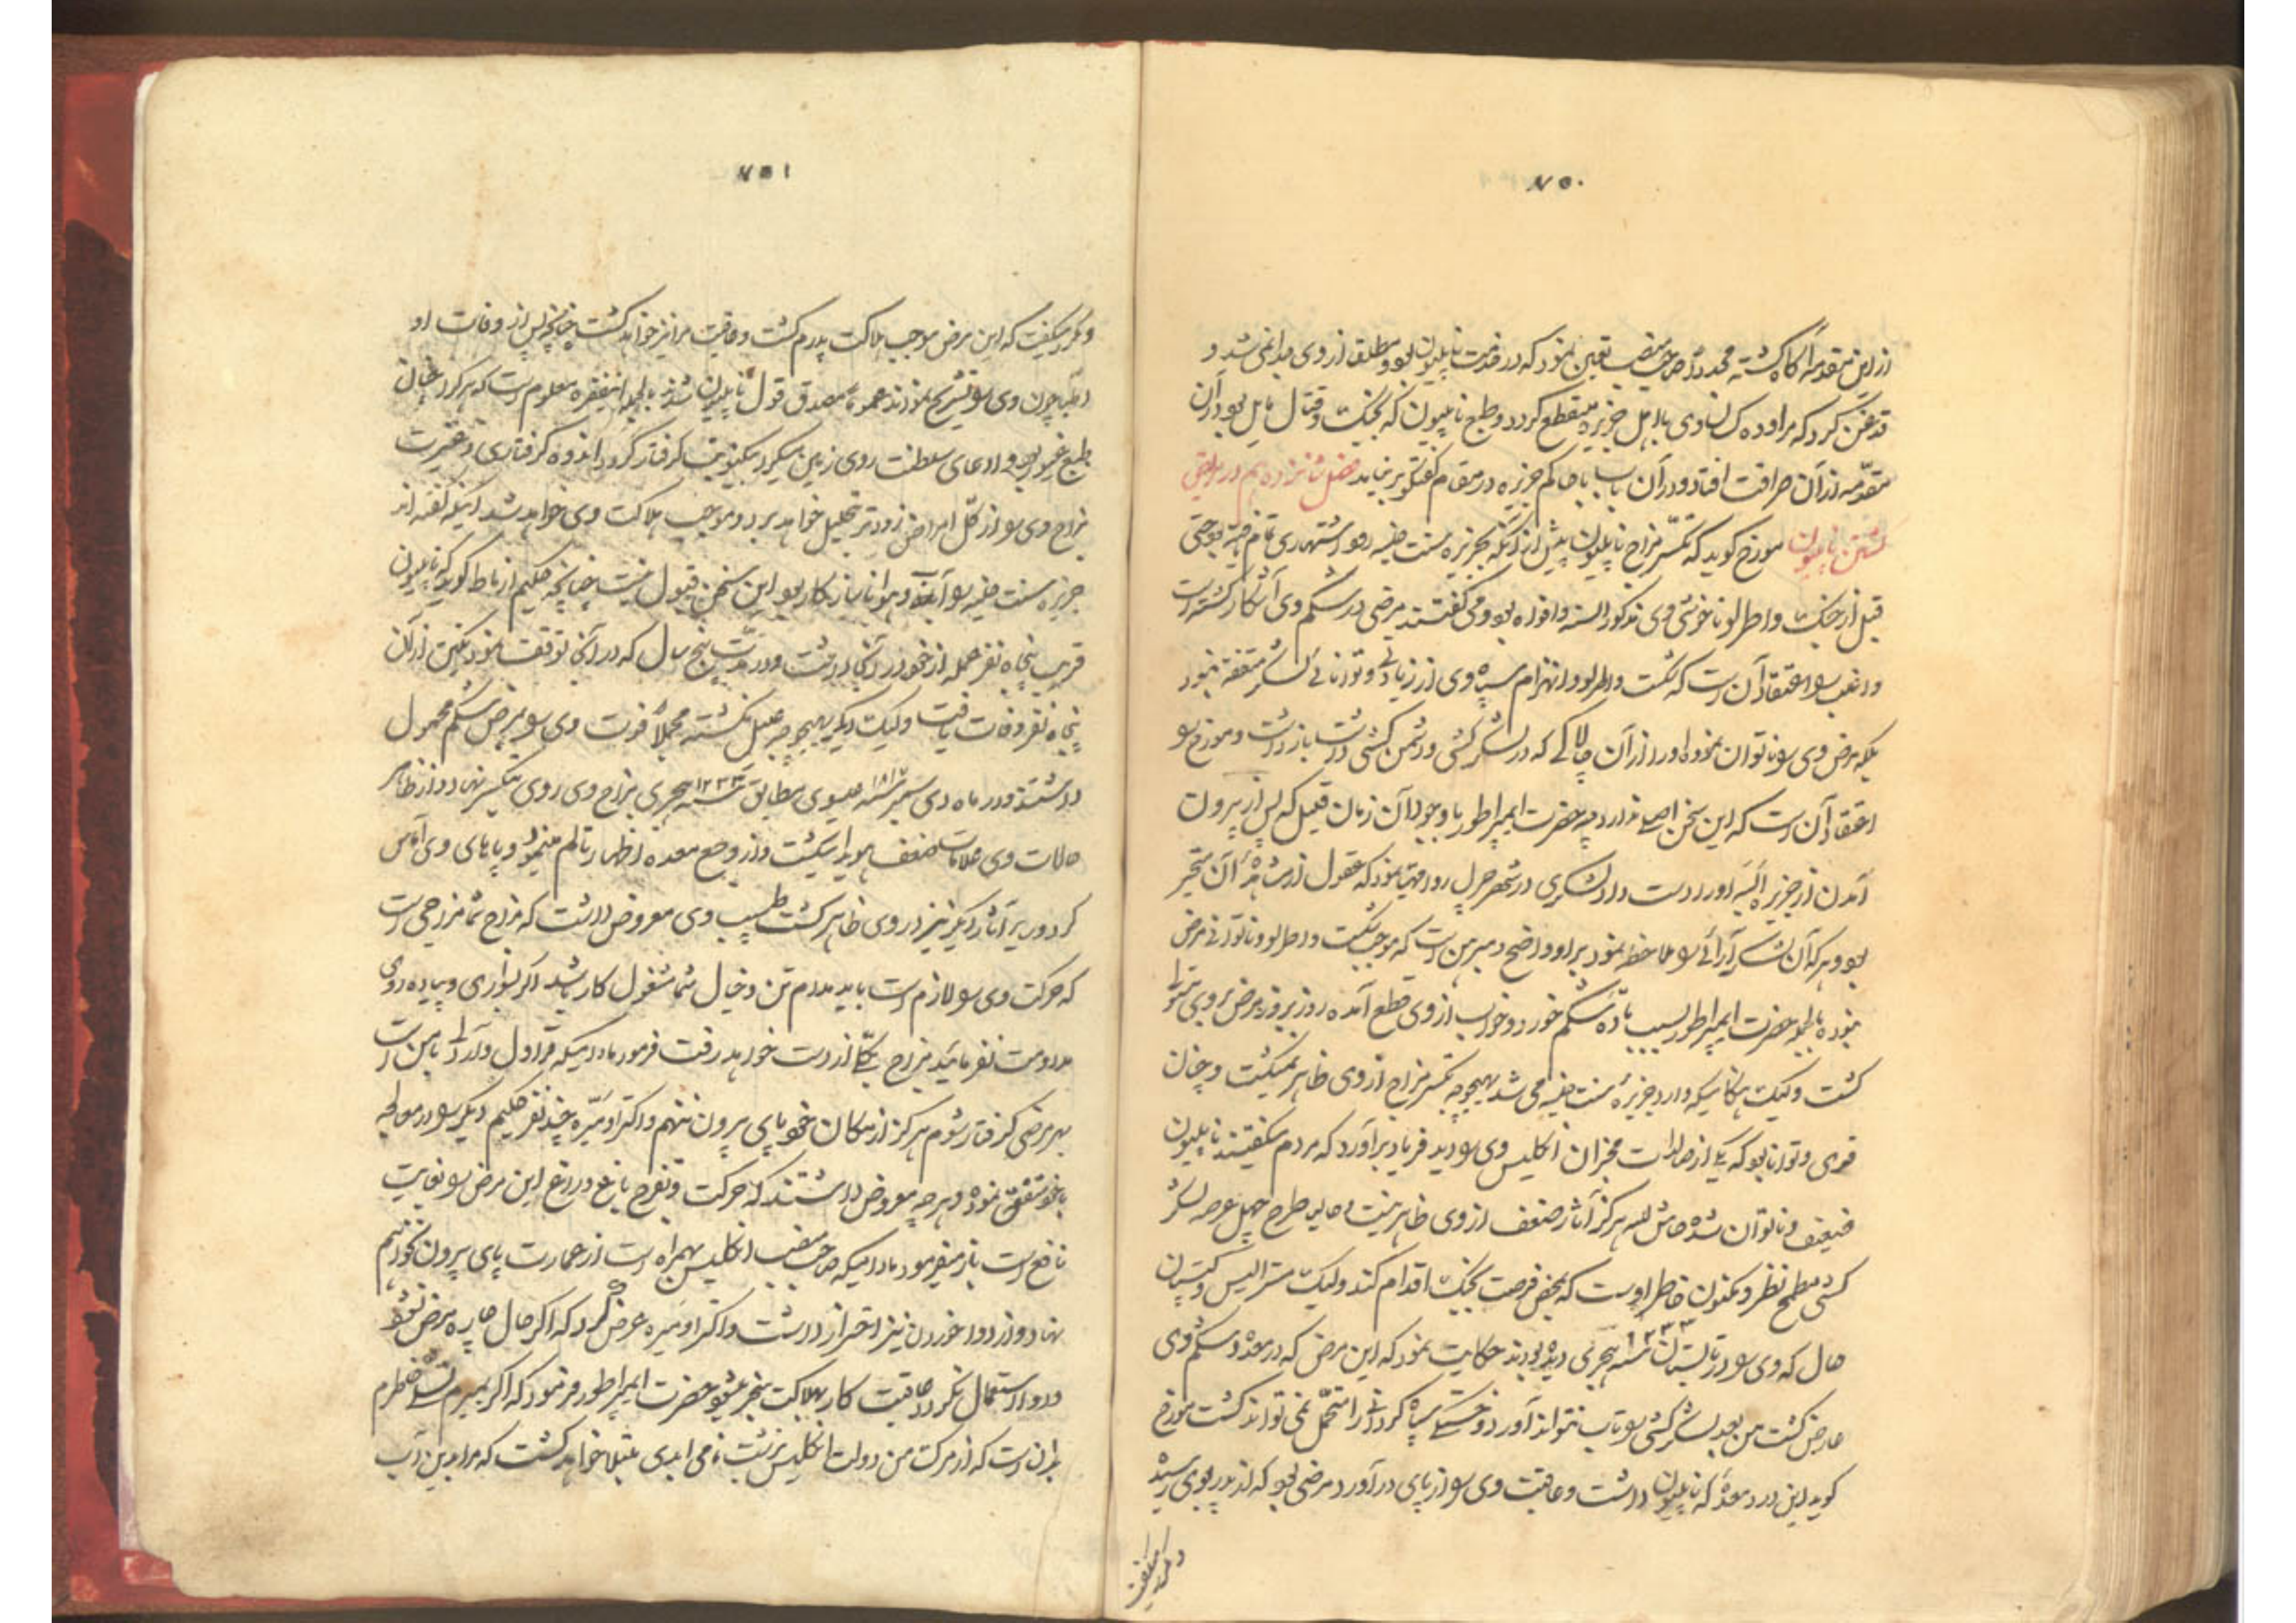 ۷۵۰
از این مقدمه آگاه گشته مجدداً صاحب منصب تعیین نمود که در خدمت ناپلیون بود و مطلق از وی جدا نمی شد و
قدغن کرد که مراوده کسان وی با اهل جزیره منقطع گردد و طبع ناپلیون که بجنگ و قتال مایل بود از آن
مقدمه از آن صرافت افتاد و در آن باب با حاکم جزیره در مقام گفتگو برنیامد فصل شانزدهم در مریض
گشتن ناپلیون مورخ گوید که تکسر مزاج ناپلیون پیش از آنکه بجزیره سنت هلنه رود اشتهاری تمام یافته بود حتی
قبل از جنگ واطرلو ناخوشی وی مذکور السنه و افواه بود و می گفتند مرضی در شکم وی آشکار گشته است
و اغلب را اعتقاد آن است که شکست واطرلو و انهزام سپاه وی از زیادتی و توانائی لشکر متفقه نبود
بلکه مرض وی را ناتوان نموده او را از آن چالاکی که در لشکر کشی و دشمن کشی داشت باز داشت و مورخ را
اعتقاد آن است که این سخن اصلی ندارد چه حضرت ایمپراطور با وجود آن زمان قلیل که پس از بیرون
آمدن از جزیره البه او را دست داد لشکری در ظرف چهل روز مهیا نمود که عقول از مشاهده آن متحیر
بود و هر که آن لشکر آرائی را ملاحظه نمود بر او واضح و مبرهن است که موجب شکست واطرلو نه ناتوانی مرض
بوده بالجمله حضرت ایمپراطور بسبب ماده شکم خورد و خواب از وی قطع آمده روز بروز مرض بر وی
گشت ولیک هنگامیکه وارد جزیره سنت هلنه می شد بهیچوجه تکسر مزاج از وی ظاهر نمیگشت و چنان
قوی و توانا بود که یکی از مخبران انگلیس وی را دید فریاد برآورد که مردم میگفتند ناپلیون
ضعیف و ناتوان شده حاش لله هرگز آثار ضعف از وی ظاهر نیست و حالیا طرح چهل عرصه لشکر
کشی مطمح نظر و مکنون خاطر اوست که بمحض فرصت بجنگ اقدام کند ولیک مستر الیس و کپتان
هال که وی را در تابستان ۱۲۳۳ هجری دیده بودند حکایت نمود که این مرض که در معده و شکم وی
عارض گشت من بعد لشکر کشی را تاب نتواند آورد و خستگی سپاه کردانی را متحمل نمی تواند گشت مورخ
گوید این درد معده که ناپلیون داشت و عاقبت وی را از پای درآورد مرضی بود که از پدر بوی رسید
و مکرر میگفت
۷۵۱
و مکرر میگفت که این مرض موجب هلاکت پدرم گشت و عاقبت مرا نیز خواهد کشت چنانچه پس از وفات او
اطبا چون وی را تشریح نمودند همه مصدق قول ناپلیون شدند بالجمله اینفقره معلوم است که هر کرا عنان
طبع غیور بود و ادعای سلطنت روی زمین میکرد بدینوضعیت گرفتار گردد اندوه گرفتاری و غیرت
مزاج وی را از کل امراض زودتر تحلیل خواهد برد و موجب هلاکت وی خواهد شد اینکه گفته اند
جزیره سنت هلنه را آب و هوا ناسازگار بود این سخن قبول نیست چنانچه حکیم ارناط گوید که ناپلیون
قریب پنجاه نفر عمله از خود در آنجا داشت و در مدت پنج سال که در آنجا توقف نمود یکتن از آن
پنجاه نفر وفات یافت ولیک دیگر بهیچوجه علیل نگشته مجملاً فوت وی را بمرض شکم محمول
داشتند و در ماه دی سمبر ۱۸۱۷ عیسوی مطابق ۱۲۳۳ هجری مزاج وی روی بتکسر نهاد و از ظاهر
حالات وی علامات ضعف هویدا میگشت و از وجع معده اظهار تالم مینمود و پاهای وی آماس
کرد و ریر آثار دیگر نیز در وی ظاهر گشت طبیب وی معروض داشت که مزاج شما مزاجی است
که حرکت وی را لازم است باید مدام تن و خیال شما مشغول کار باشد اگر بسواری و پیاده روی
مداومت نفرمائید مزاج بکلی از دست خواهد رفت فرمود مادامیکه قراول و با من است
بهر مرضی گرفتار شوم هرگز از مکان خود پای بیرون ننهم داکتر اومیره چند نفر حکیم دیگر را در معالجه
با خود متفق نموده و هر چه معروض داشتند که حرکت و تفرج باغ و راغ این مرض را بغایت
نافع است باز میفرمود مادامیکه صاحب منصب انگلیس همراه است از عمارت پای بیرون نخواهم
نهاد و از دوا خوردن نیز احتراز داشت داکتر اومیره عرض کرد که اگر حال چاره مرض نشود
و دوا استعمال نگردد عاقبت کار بهلاکت منجر میشود حضرت ایمپراطور فرمود که اگر بمیرم تسلی خاطرم
بدان است که از مرگ من دولت انگلیس بزشت نامی ابدی مبتلا خواهد گشت که مرا بدین آب